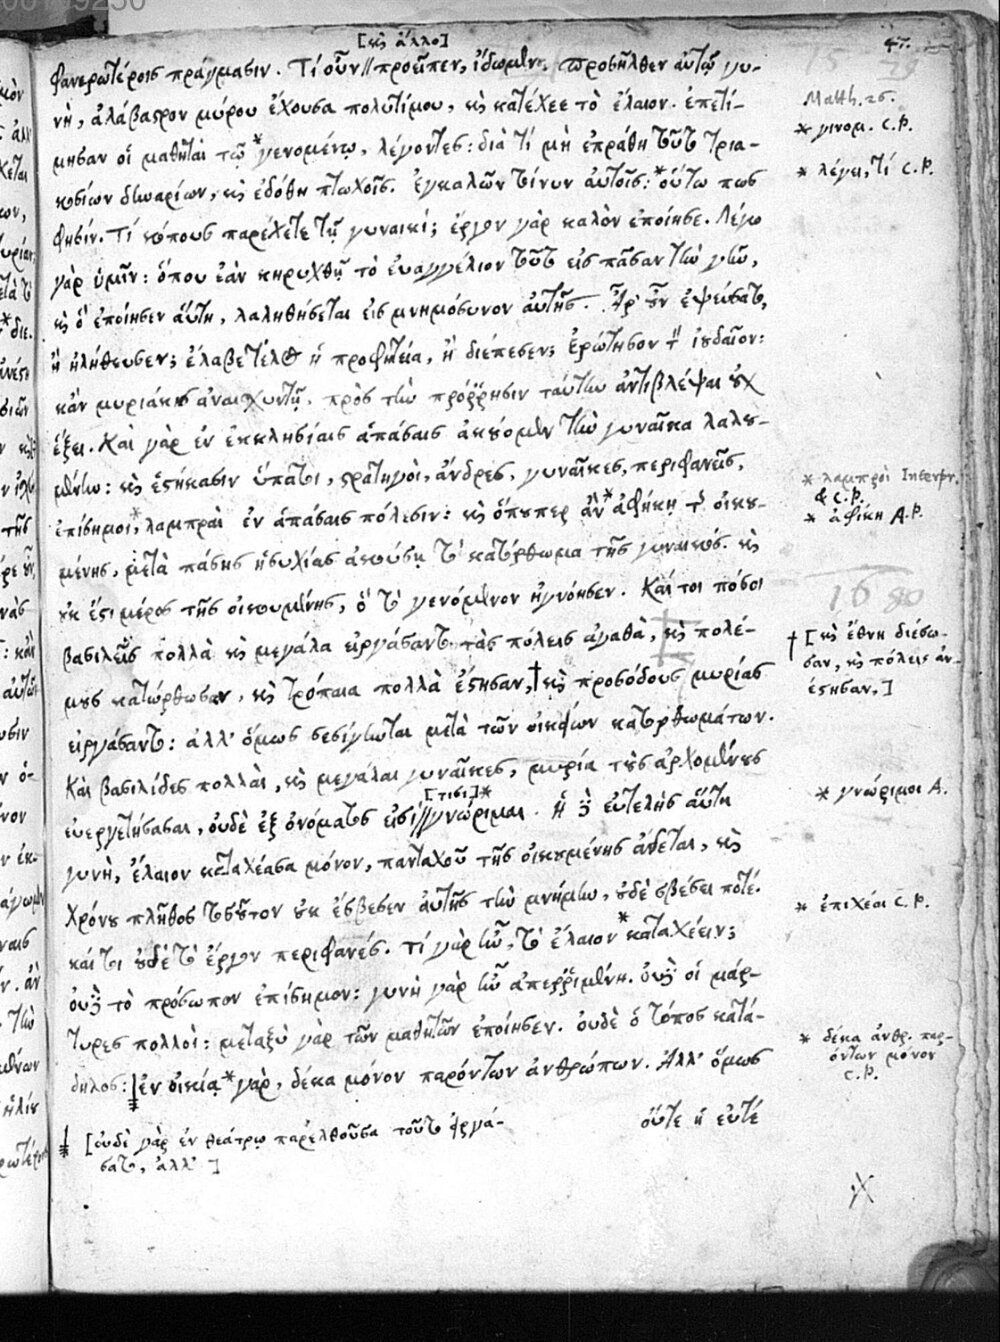 [καὶ ἄλλο]
47.
φανερωτέροις πράγμασιν. Τί οὖν // προεῖπεν, ἴδωμεν. προσῆλθεν αὐτῷ γυ-
νὴ, ἀλάβαστρον μύρου ἔχουσα πολυτίμου, καὶ κατέχεε τὸ ἔλαιον. ἐπετί-
μησαν οἱ μαθηταὶ τῷ *γενομένῳ, λέγοντες: διὰ τί μὴ ἐπράθη τοῦτο τρια-
κοσίων δηναρίων, καὶ ἐδόθη πτωχοῖς. ἐγκαλῶν τοίνυν αὐτοῖς: *οὕτω πως
φησίν. Τί κόπους παρέχετε τῇ γυναικί; ἔργον γὰρ καλὸν ἐποίησε. Λέγω
γὰρ ὑμῖν: ὅπου ἐὰν κηρυχθῇ τὸ εὐαγγέλιον τοῦτο εἰς πᾶσαν τὴν γῆν,
καὶ ὃ ἐποίησεν αὕτη, λαληθήσεται εἰς μνημόσυνον αὐτῆς. Ἆρ' οὖν ἐψεύσατο,
ἢ ἠλήθευσεν; ἔλαβε τέλος ἡ προφητεία, ἢ διέπεσεν; ἐρώτησον τὸν ἰουδαῖον:
κἂν μυριάκις ἀναισχυντῇ, πρὸς τὴν πρόῤῥησιν ταύτην ἀντιβλέψαι οὐχ
ἕξει. Καὶ γὰρ ἐν ἐκκλησίαις ἁπάσαις ἀκούομεν τὴν γυναῖκα λαλου-
μένην: καὶ ἑστήκασιν ὕπατοι, στρατηγοὶ, ἄνδρες, γυναῖκες, περιφανεῖς,
ἐπίσημοι, *λαμπραὶ ἐν ἁπάσαις πόλεσιν: καὶ ὅπουπερ ἂν *ἀφήκῃ τῆς οἰκου-
μένης, μετὰ πάσης ἡσυχίας ἀκούσῃ τὸ κατόρθωμα τῆς γυναικός. καὶ
οὐκ ἔστι μέρος τῆς οἰκουμένης, ὃ τὸ γενόμενον ἠγνόησεν. Καί τοι πόσοι
βασιλεῖς πολλὰ καὶ μεγάλα εἰργάσαντο τὰς πόλεις ἀγαθὰ, καὶ πολέ-
μους κατώρθωσαν, καὶ τρόπαια πολλὰ ἔστησαν, † καὶ προσόδους μυρίας
εἰργάσαντο: ἀλλ' ὅμως σεσίγηνται μετὰ τῶν οἰκείων κατορθωμάτων.
Καὶ βασιλίδες πολλαὶ, καὶ μεγάλαι γυναῖκες, μυρία τοὺς ἀρχομένους
[τισι]*
εὐεργετήσασαι, οὐδὲ ἐξ ὀνόματος εἰσὶ // γνώριμαι. ἡ δὲ εὐτελὴς αὕτη
γυνὴ, ἔλαιον καταχέασα μόνον, πανταχοῦ τῆς οἰκουμένης ᾄδεται, καὶ
χρόνου πλῆθος τοσοῦτον οὐκ ἔσβεσεν αὐτῆς τὴν μνήμην, οὐδὲ σβέσει ποτέ.
καί τοι οὐδὲ τὸ ἔργον περιφανές. τί γὰρ ἦν, τὸ ἔλαιον *καταχέειν;
οὐδὲ τὸ πρόσωπον ἐπίσημον: γυνὴ γὰρ ἦν ἀπεῤῥιμμένη. οὐδὲ οἱ μάρ-
τυρες πολλοί: μεταξὺ γὰρ τῶν μαθητῶν ἐποίησεν. οὐδὲ ὁ τόπος κατά-
δηλος: ‡ ἐν οἰκίᾳ *γὰρ, δέκα μόνον παρόντων ἀνθρώπων. Ἀλλ' ὅμως
οὔτε ἡ εὐτέ
‡ [οὐδὲ γὰρ ἐν θεάτρῳ παρελθοῦσα τοῦτο εἰργά-
σατο, ἀλλ']
15 79
Matth. 26.
* γινομ. C.P.
* λέγει, τί C.P.
* λαμπροὶ Interpr.
& C.P.
* ἀφίκῃ A.P.
16 80
† [καὶ ἔθνη διέσω-
σαν, καὶ πόλεις ἀν-
έστησαν,]
* γνώριμοι A.
* ἐπιχέαι C.P.
* δέκα ἀνθρ. παρ-
όντων μόνον
C.P.